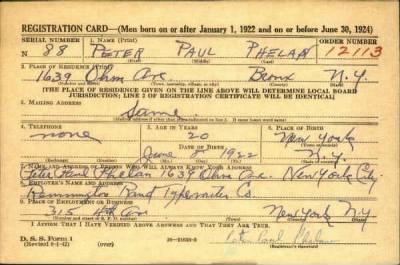 REGISTRATION CARD—(Men born on or after January 1, 1922 and on or before June 30, 1924)
SERIAL NUMBER 1. NAME (Print) ORDER NUMBER
N 88 PETER PAUL PHELAN 12113
(First) (Middle) (Last)
2. PLACE OF RESIDENCE (Print)
1639 Ohm Ave. Bronx N.Y.
[THE PLACE OF RESIDENCE GIVEN ON THE LINE ABOVE WILL DETERMINE LOCAL BOARD
JURISDICTION; LINE 2 OF REGISTRATION CERTIFICATE WILL BE IDENTICAL]
3. MAILING ADDRESS
Same
4. TELEPHONE 5. AGE IN YEARS 6. PLACE OF BIRTH
none 20 New York
DATE OF BIRTH
June 8 1922 N.Y.
(Exchange) (Number) (Mo.) (Day) (Yr.) (State or country)
7. NAME AND ADDRESS OF PERSON WHO WILL ALWAYS KNOW YOUR ADDRESS
Peter Paul Phelan 1639 Ohm Ave. New York City
8. EMPLOYER'S NAME AND ADDRESS
Remington Rand Typewriter Co.
9. PLACE OF EMPLOYMENT OR BUSINESS
315 4th Ave New York N.Y.
I AFFIRM THAT I HAVE VERIFIED ABOVE ANSWERS AND THAT THEY ARE TRUE.
D. S. S. Form 1
(over) Peter Paul Phelan
(Registrant's signature)